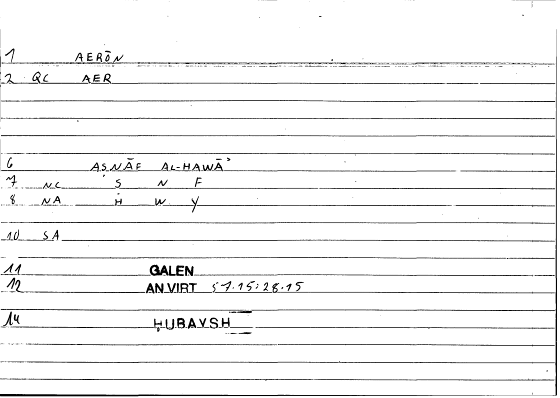 1 AERŌN
2 QC AER
6 AṢNĀF AL-HAWĀʾ
7 NC Ṣ N F
8 NA H W Y
10 SA
11 GALEN
12 AN VIRT 57.15:28.15
14 ḤUBAYSH